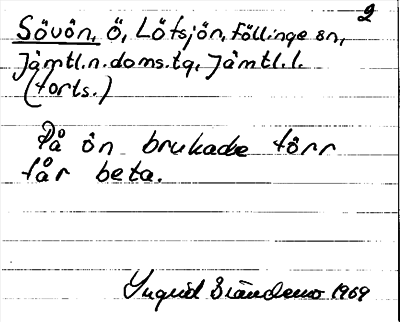 2
Sövön, Ö, Lötsjön, Föllinge sn,
Jämtl.n.doms.tg, Jämtl.l.
(forts.)
På ön brukade förr
får beta.
Ingrid 1969